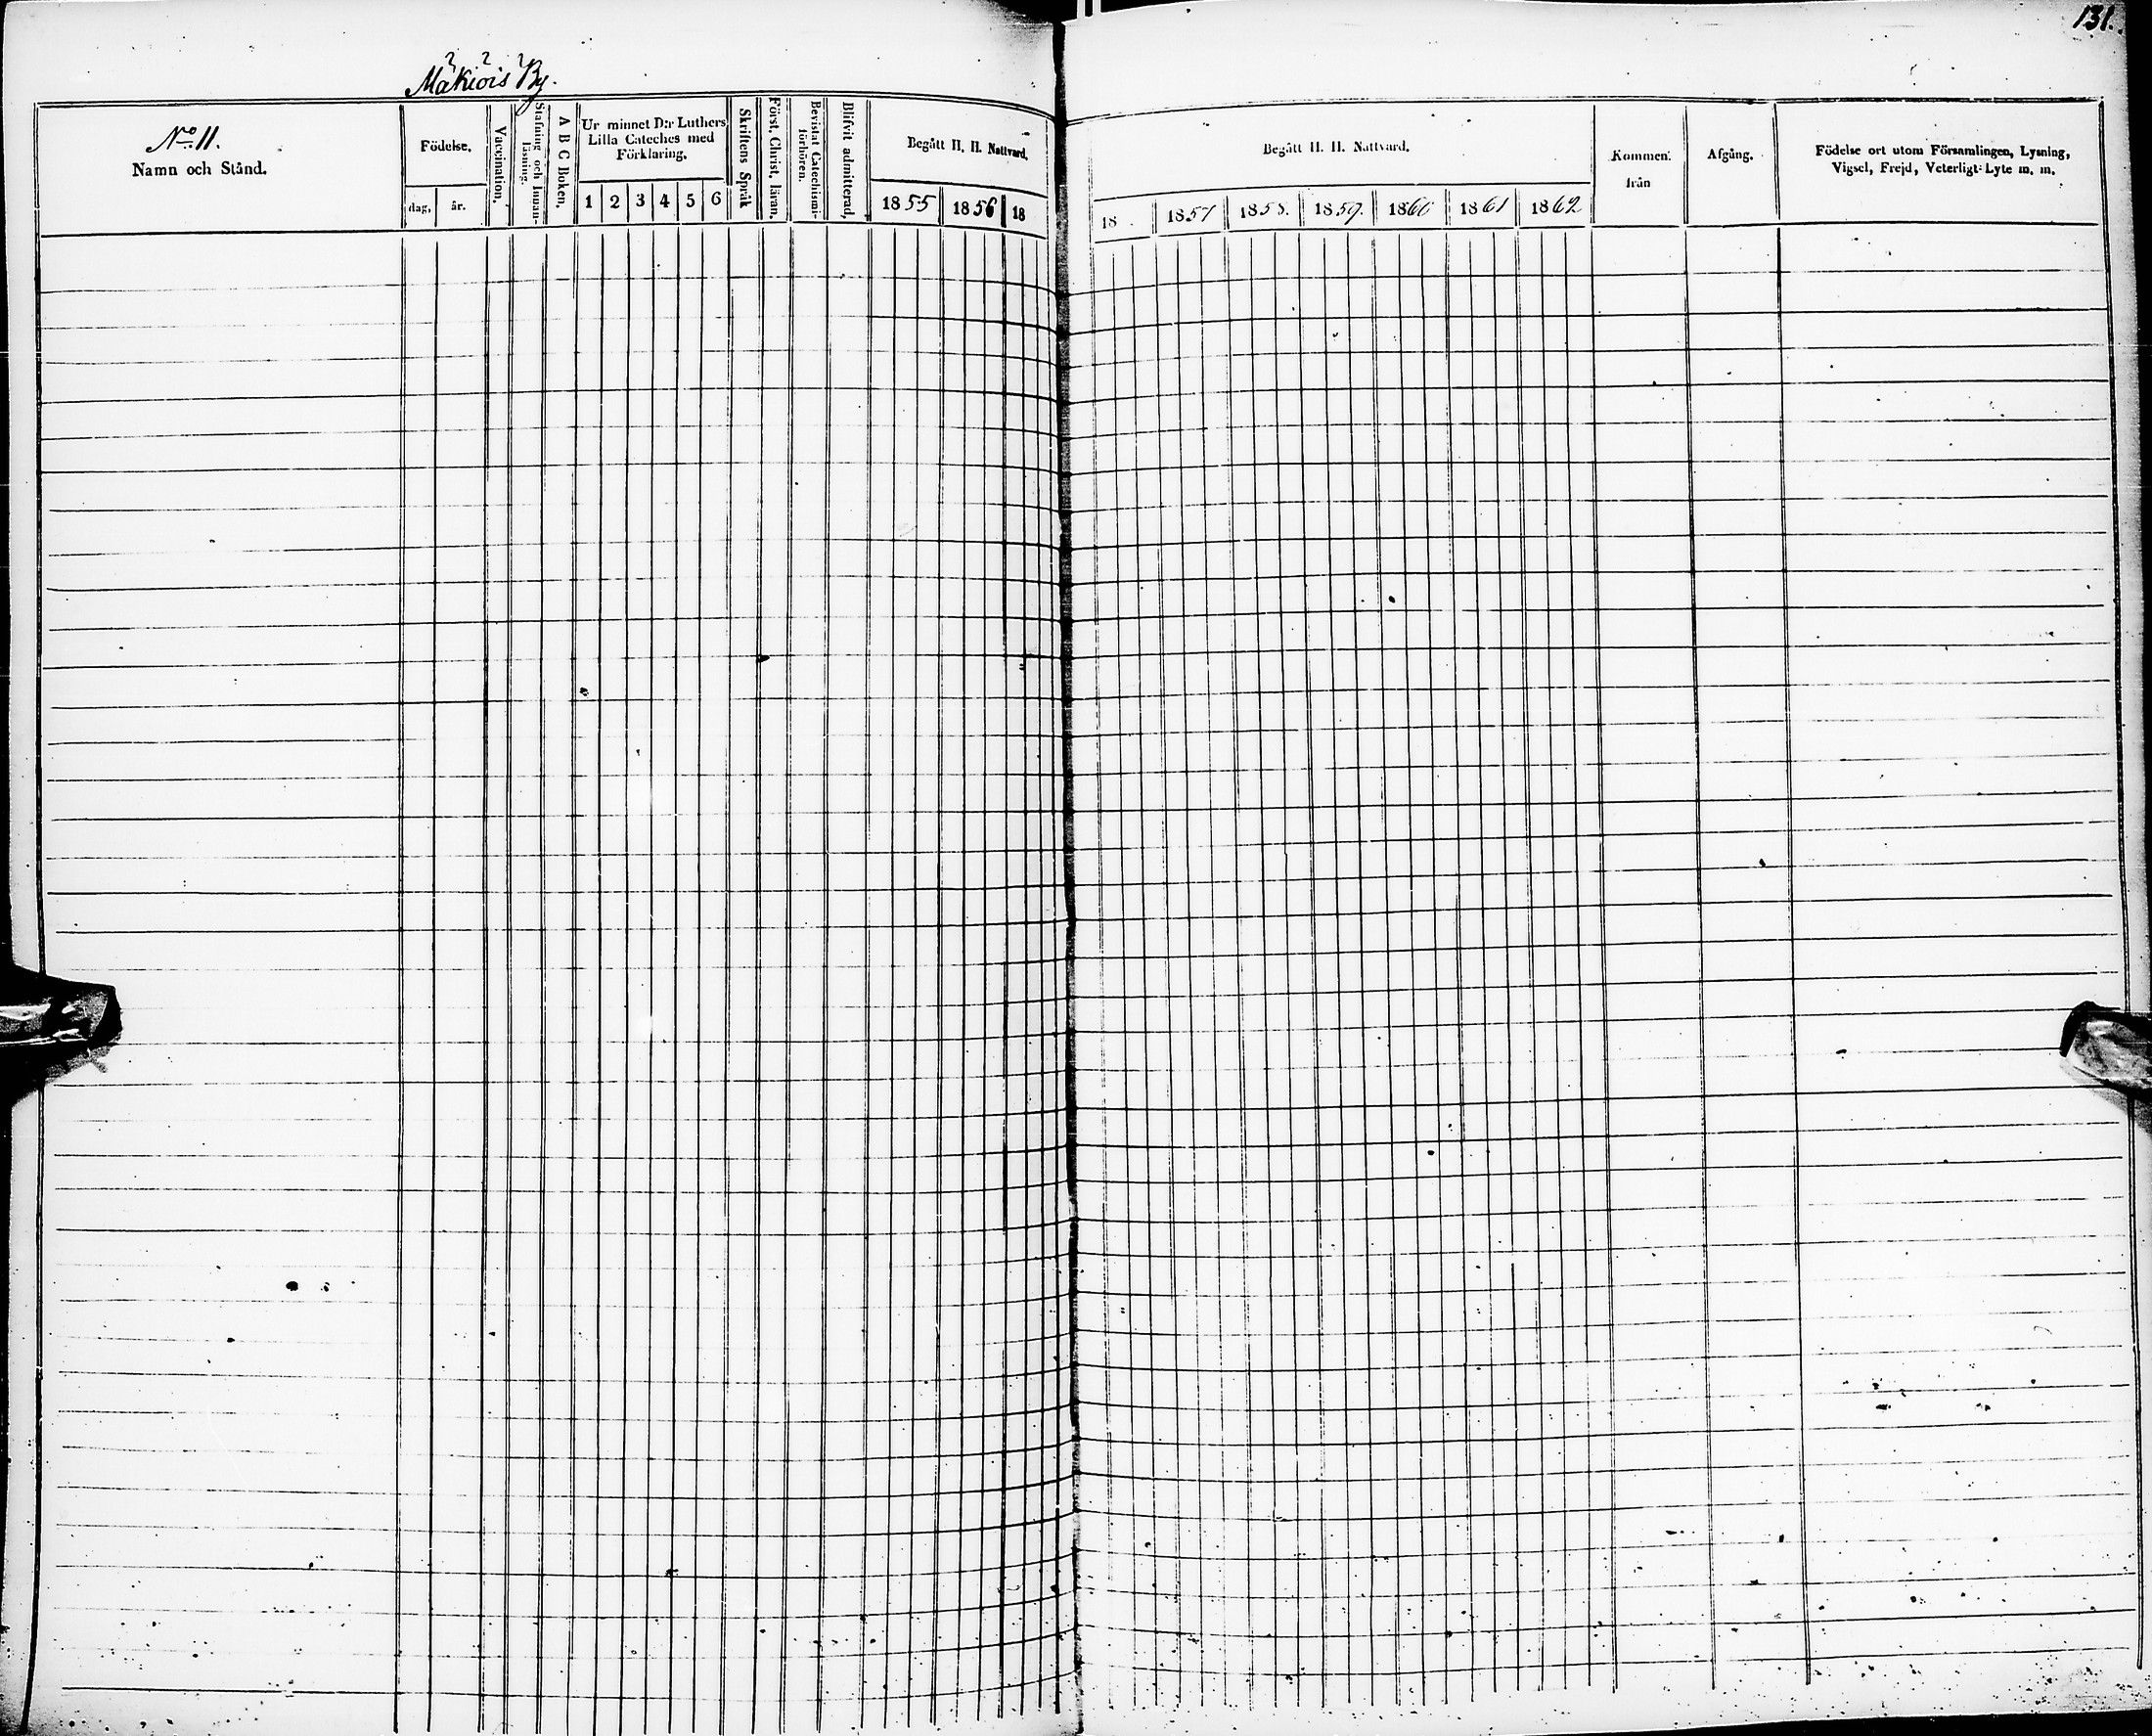 131.
Mäkiöis By.
No 11.
Namn och Stånd.
Födelse.
dag. år.
Vaccination.
Stafning och Innan-
läsning.
A B C Boken.
Ur minnet D:r Luthers
Lilla Cateches med
Förklaring.
1 2 3 4 5 6
Skriftens Språk
Först. Christ. läran.
Bevistat Catechismi-
förhören.
Blifvit admitterad.
Begått H. H. Nattvard.
1855 1856 18
Begått H. H. Nattvard.
18 1857 1858. 1859. 1860 1861 1862
Kommen
från
Afgång.
Födelse ort utom Församlingen, Lysning,
Vigsel, Frejd, Veterligt Lyte m. m.